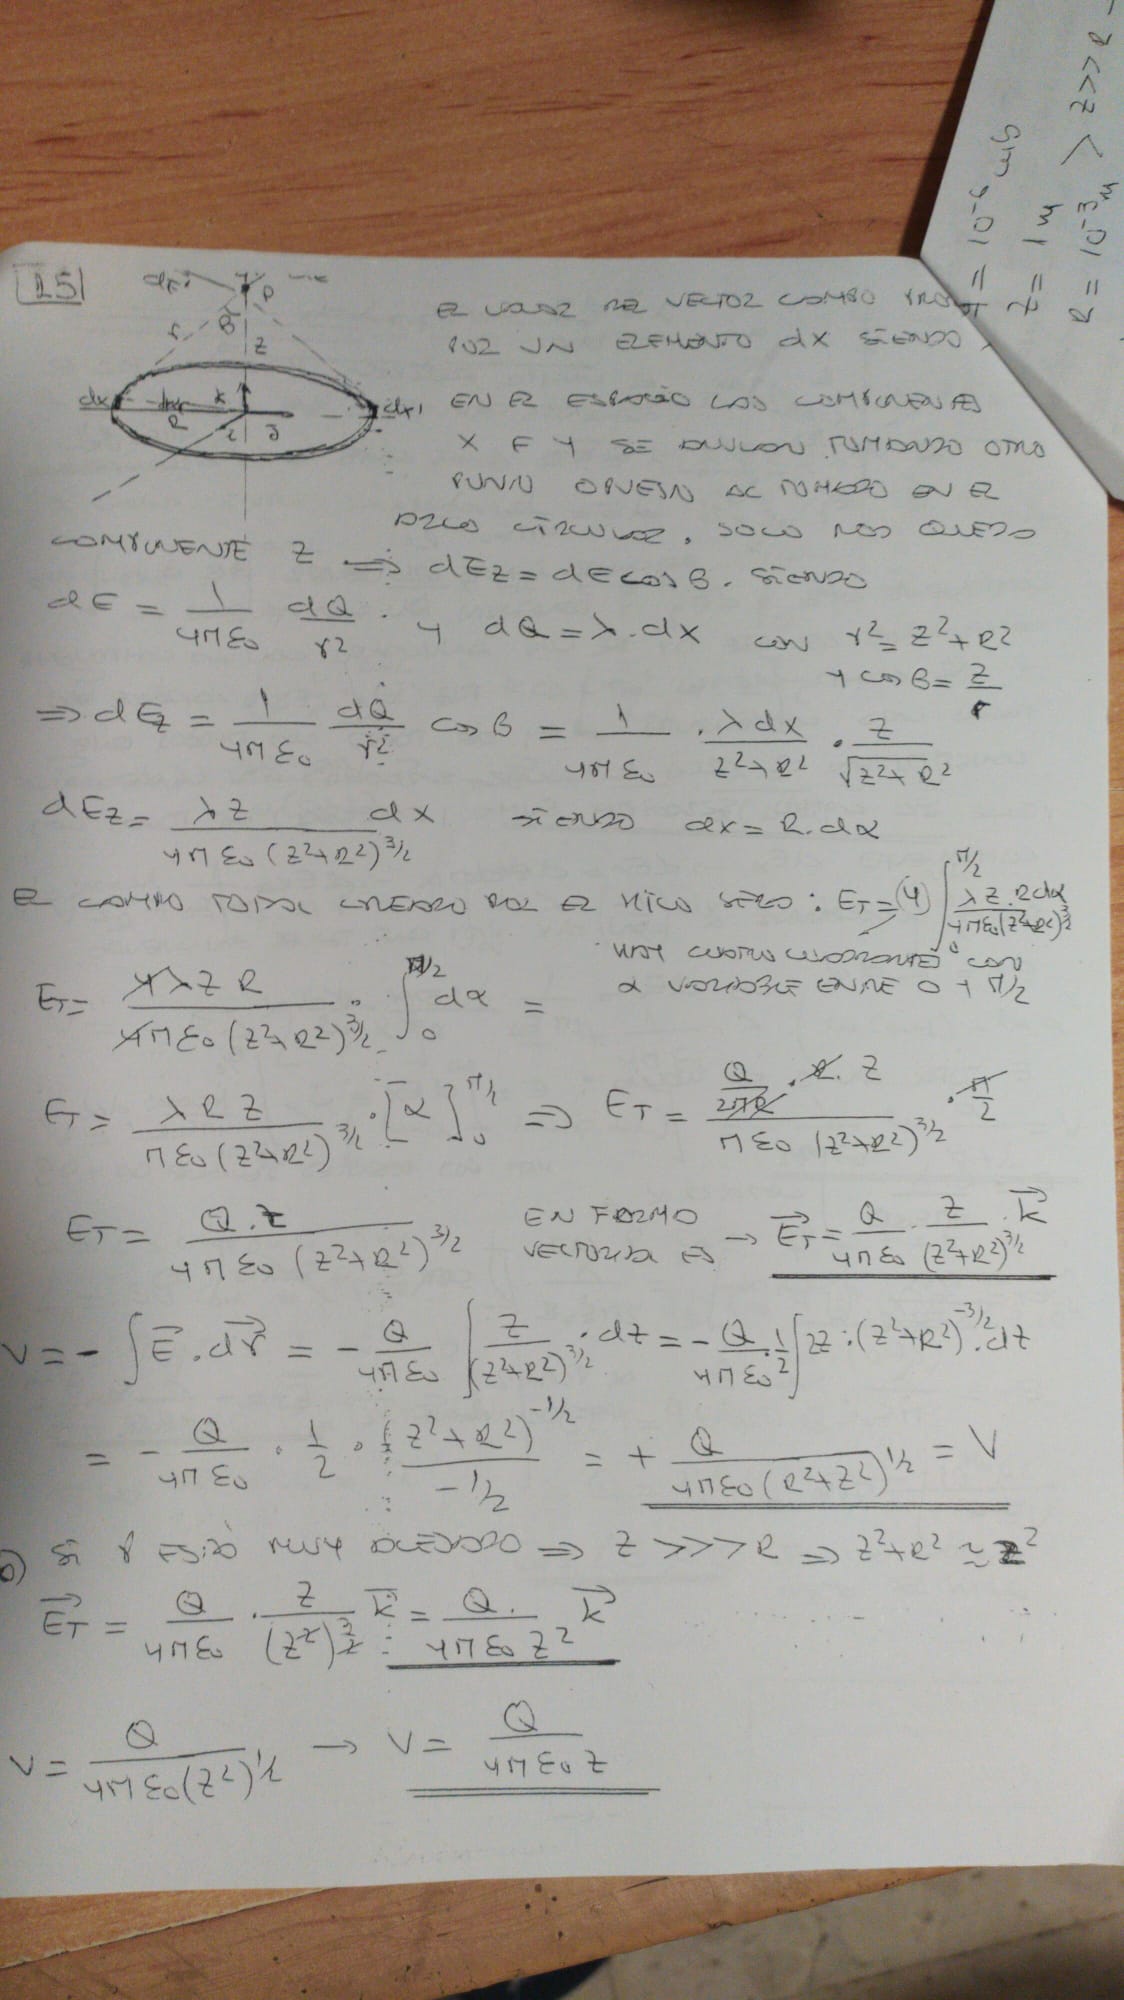 15
dE
P
r
B
z
dx
R
k
i
j
dx'
EL VALOR DEL VECTOR CAMPO
POR UN ELEMENTO dx SIENDO
EN EL ESPACIO LAS COMPONENTES
X E Y SE ANULAN TOMANDO OTRO
PUNTO OPUESTO AL TOMADO EN EL
CIRCULAR. SOLO NOS QUEDA
COMPONENTE Z ⟹ dEz = dE cos B. SIENDO
dE = 1/(4πε₀) dQ/r² · Y dQ = λ·dx con r² = z²+R²
Y cos B = z/r
⟹ dEz = 1/(4πε₀) dQ/r² cos B = 1/(4πε₀) · λdx/(z²+R²) · z/√(z²+R²)
dEz = λz/(4πε₀(z²+R²)^3/2) dx SIENDO dx = R·dα
EL CAMPO TOTAL CREADO POR EL HILO SERÁ: E_T = (4) ∫₀^π/2 λz·Rdα/(4πε₀(z²+R²)^3/2)
HAY CUATRO CUADRANTES CON
α VARIABLE ENTRE 0 Y π/2
E_T = 4λzR/(4πε₀(z²+R²)^3/2) · ∫₀^π/2 dα =
E_T = λRz/(πε₀(z²+R²)^3/2) · [α]₀^π/2 ⟹ E_T = (Q/(2πR) · R · z)/(πε₀(z²+R²)^3/2) · π/2
E_T = Q·z/(4πε₀(z²+R²)^3/2) EN FORMA VECTORIAL ES → E⃗_T = Q/(4πε₀) · z/(z²+R²)^3/2 · k⃗
V = -∫E⃗·dr⃗ = -Q/(4πε₀) ∫ z/(z²+R²)^3/2 · dz = -Q/(4πε₀) · 1/2 ∫2z·(z²+R²)^-3/2 · dz
= -Q/(4πε₀) · 1/2 · (z²+R²)^-1/2/(-1/2) = + Q/(4πε₀(R²+z²)^1/2) = V
b) SI P ESTÁ MUY ALEJADO ⟹ z >>> R ⟹ z²+R² ≈ z²
E⃗_T = Q/(4πε₀) · z/(z²)^3/2 k⃗ = Q/(4πε₀z²) k⃗
V = Q/(4πε₀(z²)^1/2) → V = Q/(4πε₀z)
= 10⁻⁶ culb
z = 1m
R = 10⁻³m > z>>R